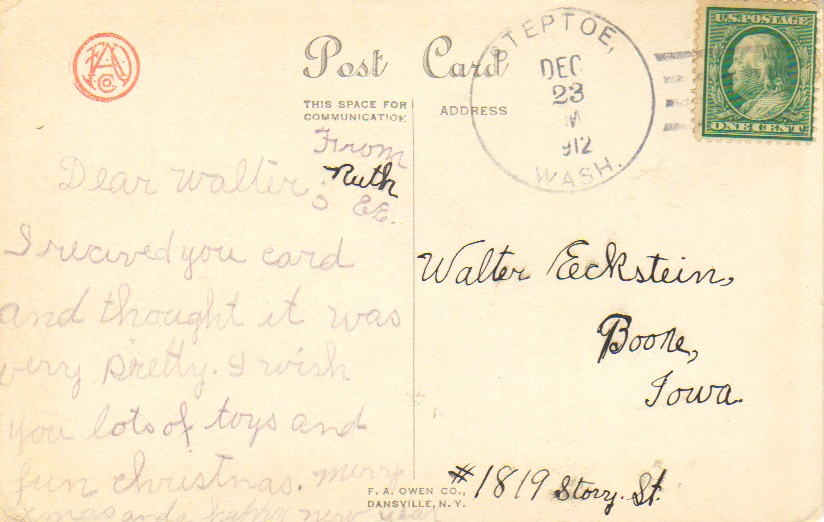 Post Card
THIS SPACE FOR
COMMUNICATION
ADDRESS
STEPTOE,
DEC
23
M
912
WASH.
U.S. POSTAGE
ONE CENT
From
Ruth
E.E.
Dear Walter;
I recived you card
and thought it was
very pretty. I wish
you lots of toys and
fun christnas. merry
xmas and a happy new year
Walter Eckstein,
Boone,
Iowa.
#1819 Story. St.
F. A. OWEN CO.,
DANSVILLE, N. Y.